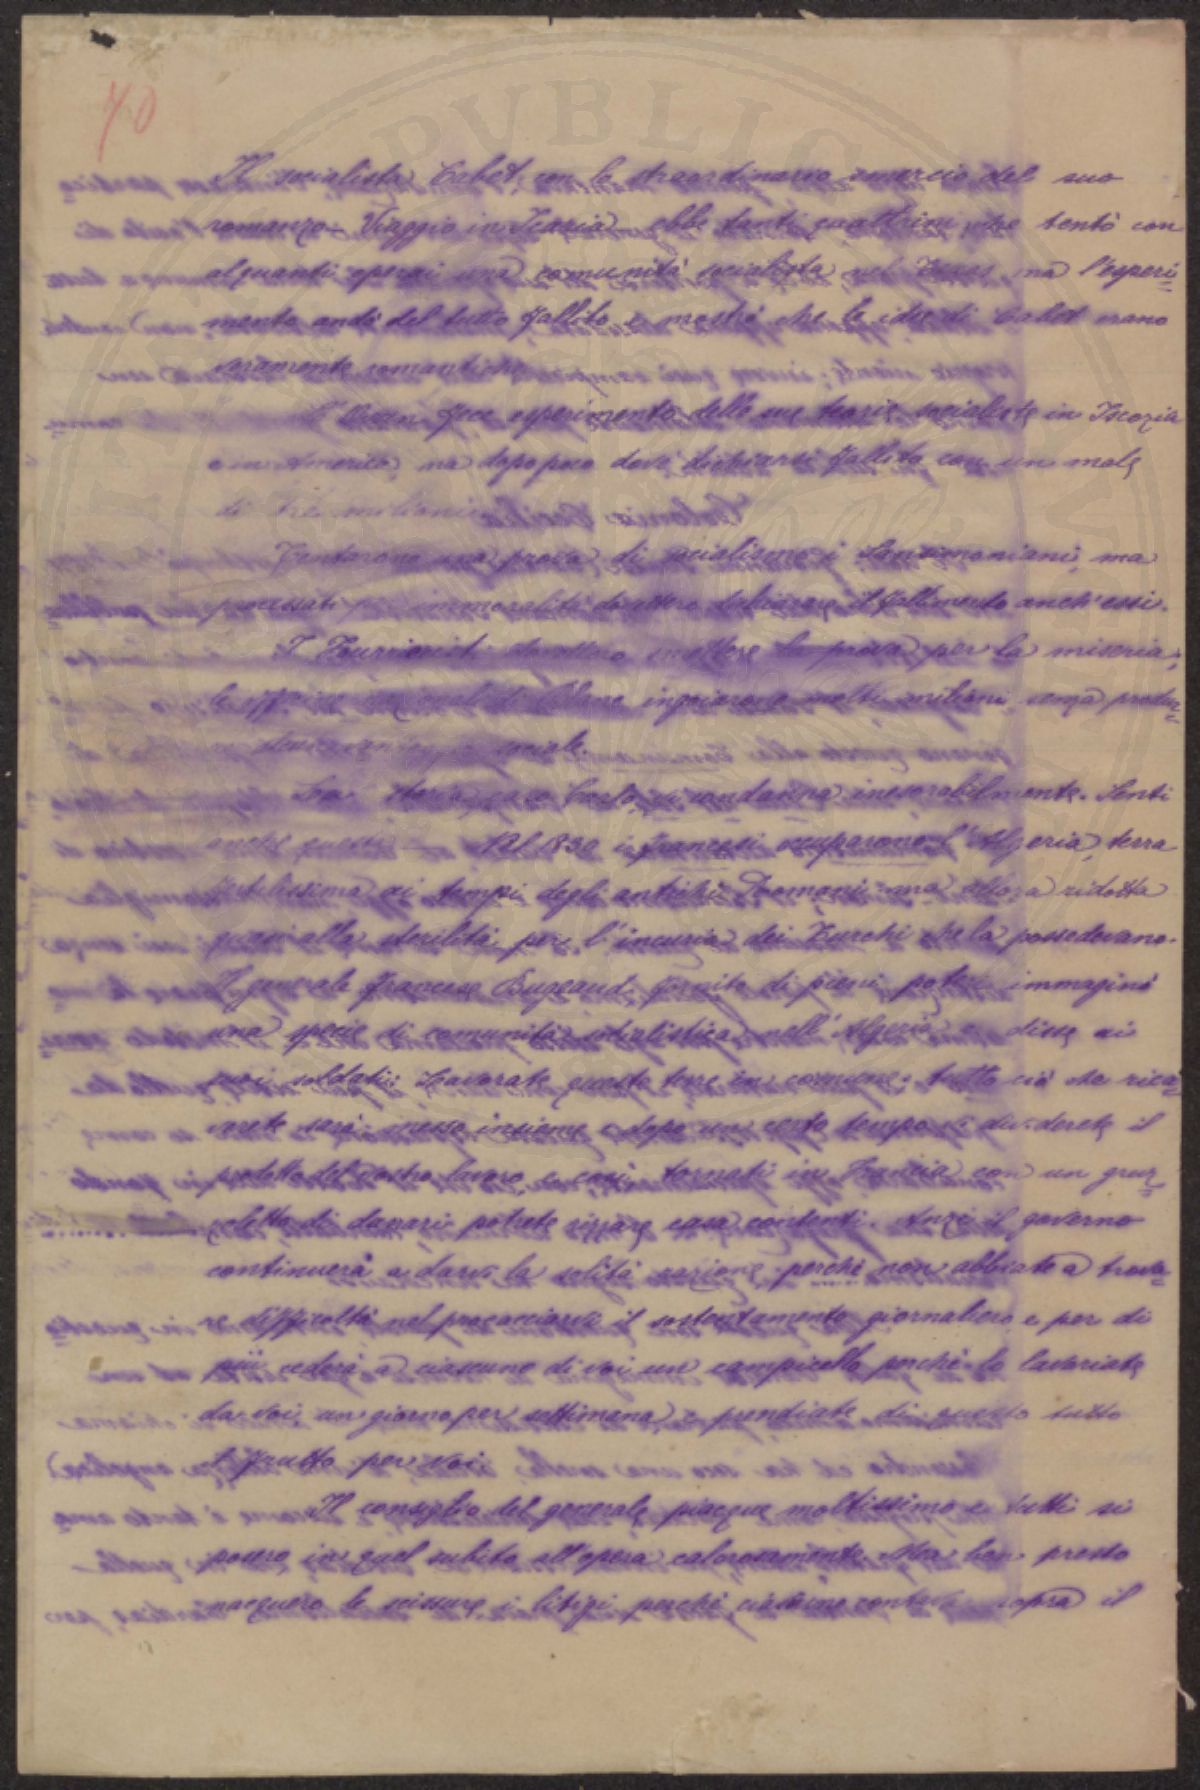 40
Il socialista Cabet, con lo straordinario smercio del suo
romanzo - Viaggio in Icaria - ebbe tanti quattrini che tentò con
alquanti operai una comunità socialista nel Texas, ma l'esperi-
mento andò del tutto fallito e mostrò che le idee di Cabet erano
veramente romantiche.
L'Owen fece esperimento delle sue teorie socialiste in Iscozia
e in America, ma dopo poco dovè dichiararsi fallito con un male
di tre milioni.
Tentarono una prova di socialismo i Sansimoniani, ma
processati per immoralità dovettero dichiarare il fallimento anch'essi.
I Fourieristi dovettero smettere la prova per la miseria;
le officine nazionali di Blanc ingoiarono molti milioni senza produr-
re alcun vantaggio sociale.
La storia, caro Carlo, vi condanna inesorabilmente. Senti
anche questa - Nel 1830 i francesi occuparono l'Algeria, terra
fertilissima ai tempi degli antichi Romani ma allora ridotta
quasi alla sterilità per l'incuria dei Turchi che la possedevano.
Il generale francese Bugeaud, fornito di pieni poteri immaginò
una specie di comunità socialistica nell'Algeria e disse ai
suoi soldati: Lavorate queste terre in comune; tutto ciò che rica-
verete sarà messo insieme e dopo un certo tempo dividerete il
prodotto del vostro lavoro, e così tornati in Francia con un gruz-
zoletto di danari potrete rizzare casa contenti. Anzi il governo
continuerà a darvi la solita razione perchè non abbiate a trova-
re difficoltà nel procacciarvi il sostentamento giornaliero, e per di
più cederà a ciascuno di voi un campicello perchè lo lavoriate
da voi un giorno per settimana e prendiate di questo tutto
il frutto per voi.
Il consiglio del generale piacque moltissimo e tutti si
posero in quel subito all'opera calorosamente. Ma ben presto
nacquero le scissure, i litigi perchè ciascuno contava sopra il